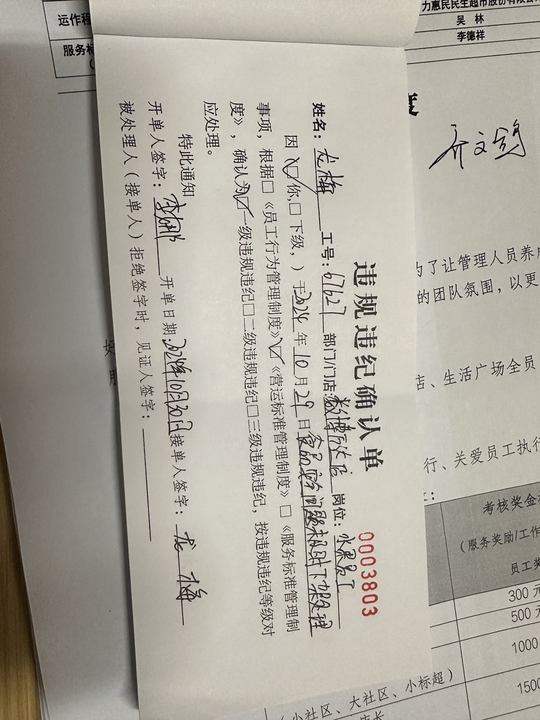 违规违纪确认单
0003803
姓名：龙梅 工号：67627 部门/门店： 岗位：水果员工
因（☑你,□下级，）于2024年10月29日食品安全问题未及时下架处理
事项，根据□《员工行为管理制度》☑《营运标准管理制度》□《服务标准管理制
度》，确认为☑一级违规违纪□二级违规违纪□三级违规违纪，按违规违纪等级对
应处理。
特此通知
开单人签字：李娜 开单日期：2024年10月30日 接单人签字：龙梅
被处理人（接单人）拒绝签字时，见证人签字：
力惠民民生超市股份有限公司
运作程
吴 林
服务标
李德祥
为了让管理人员养成
的团队氛围，以更
店、生活广场全员
行、关爱员工执行
考核奖金标
（服务奖励/工作
员工奖
300元
500元
1000
1500
（小社区、大社区、小标超）
店长